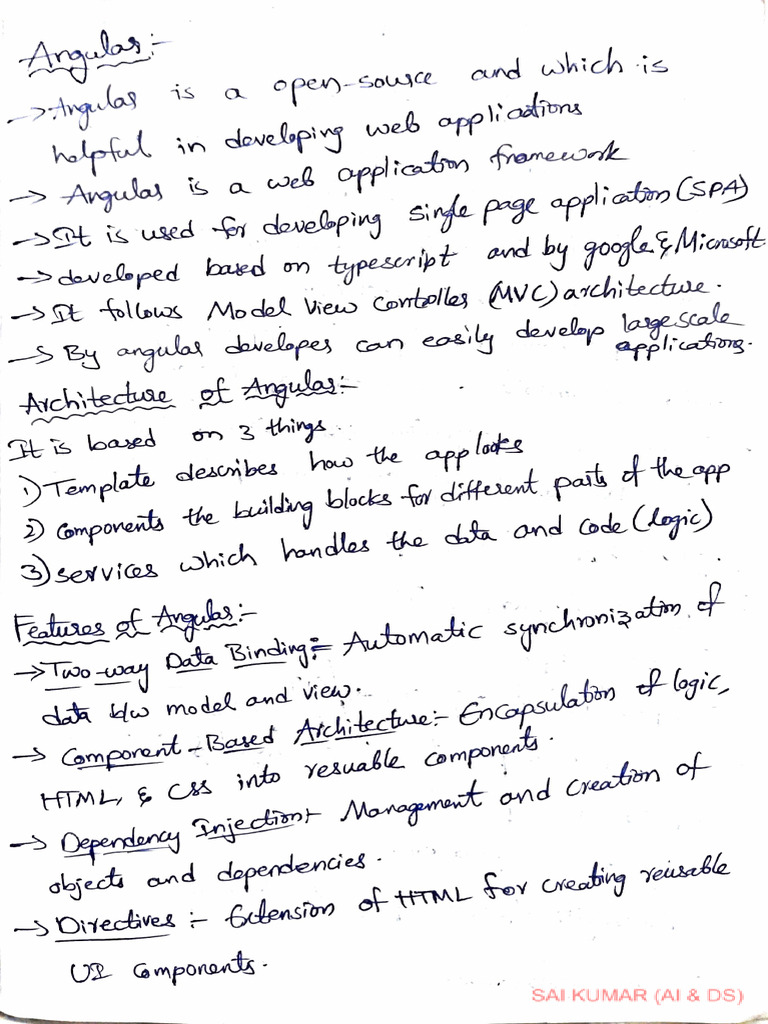 Angular:-
→ Angular is a open-source and which is
helpful in developing web applications
→ Angular is a web application framework
→ It is used for developing single page application (SPA)
→ developed based on typescript and by google & Microsoft
→ It follows Model View Controller (MVC) architecture.
→ By angular developes can easily develop large scale
applications.
Architecture of Angular:-
It is based on 3 things
1) Template describes how the app looks
2) Components the building blocks for different parts of the app
3) services which handles the data and code (logic)
Features of Angular:-
→ Two-way Data Binding:- Automatic synchronization of
data b/w model and view.
→ Component-Based Architecture:- Encapsulation of logic,
HTML, & CSS into resuable components.
→ Dependency Injection:- Management and creation of
objects and dependencies.
→ Directives:- Extension of HTML for creating reusable
UI components.
SAI KUMAR (AI & DS)